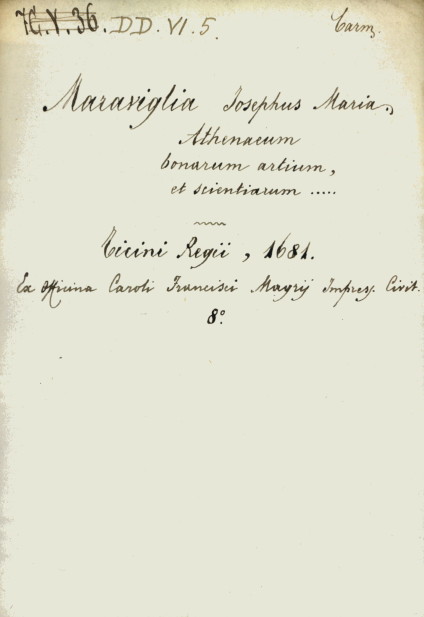 7G.V.36. DD.VI.5. Carm.
Maraviglia Josephus Maria.
Athenaeum
bonarum artium,
et scientiarum .....
Ticini Regii, 1681.
Ex Officina Caroli Francisci Magrij Impres. Civit.
8º.